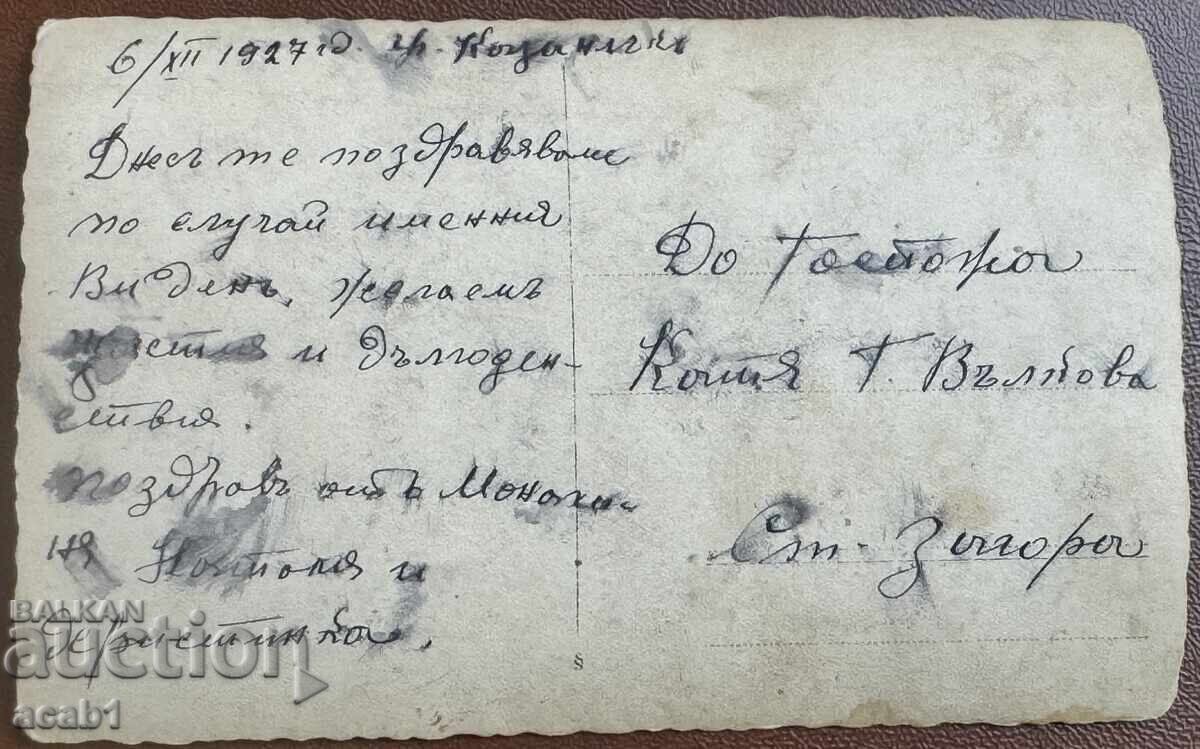 6/XII 1927 год. гр. Казанлък
Днесъ те поздравяваме
по случай именния
Ви денъ, желаемъ
щастия и дългоден-
ствия.
поздравъ отъ Монахи-
ня и
До Госпожа
Катя Г. Вълкова
Ст. Загора
§
BALKAN
auction
acab1